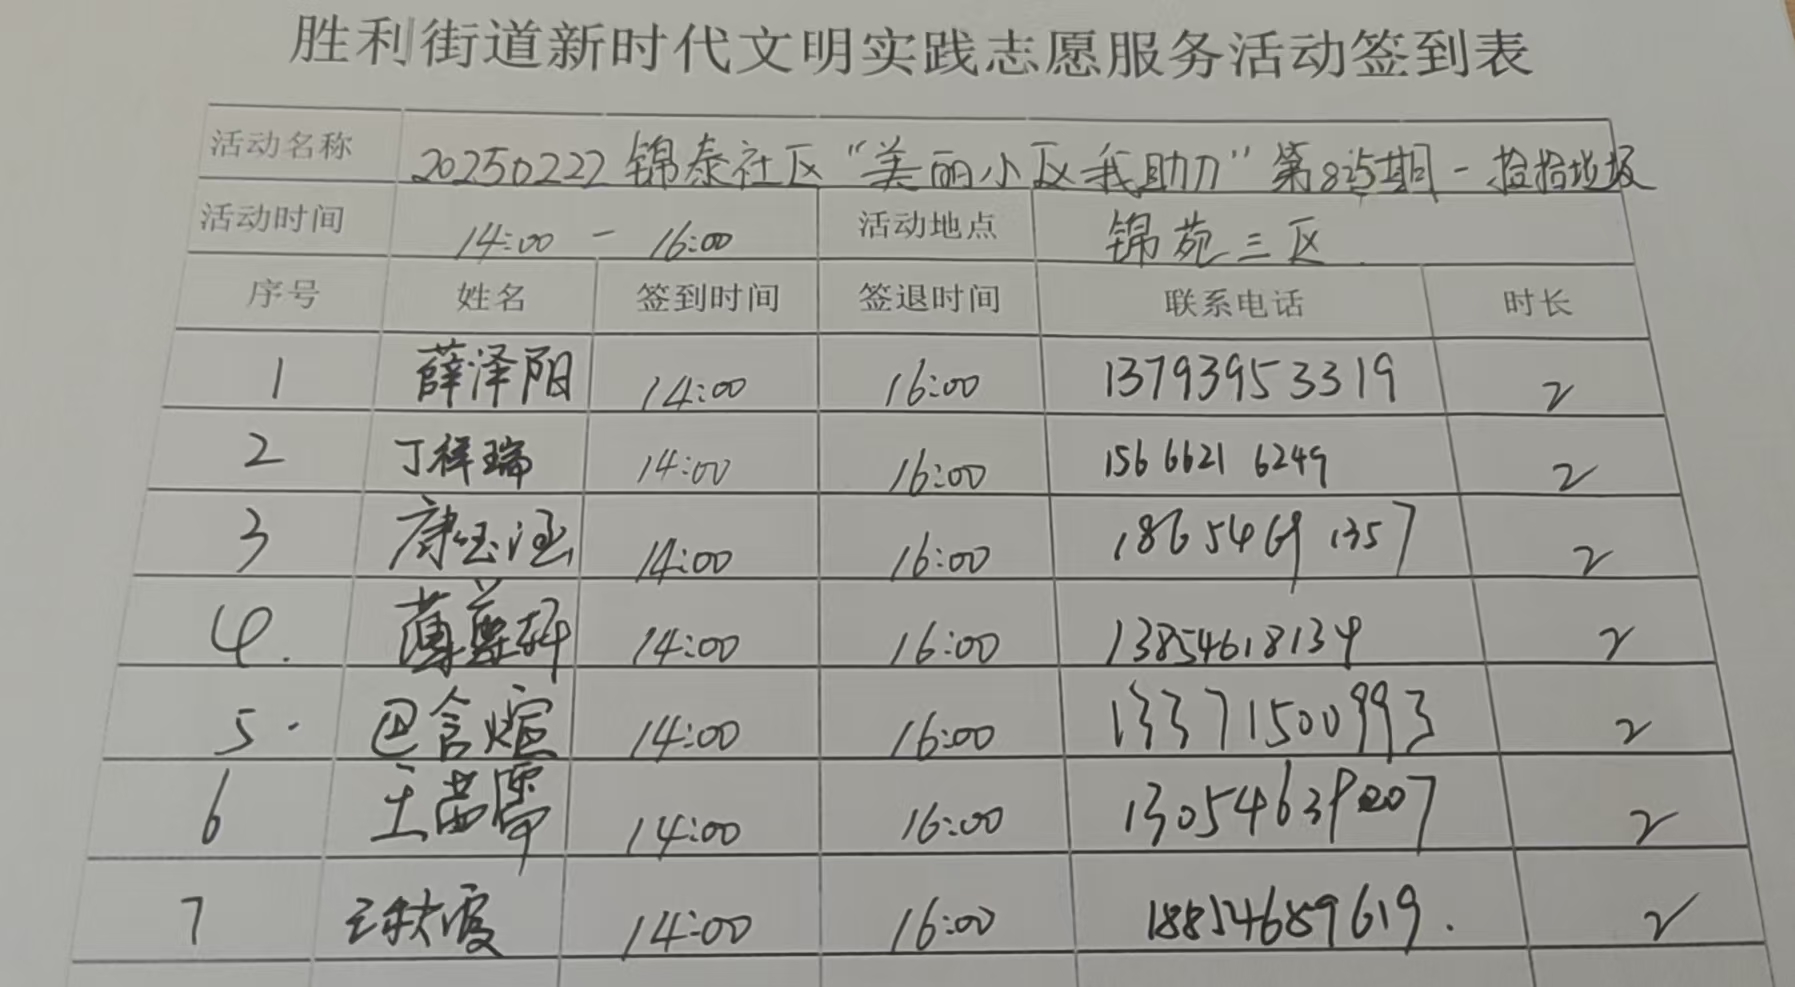 胜利街道新时代文明实践志愿服务活动签到表
活动名称 20250222锦泰社区“美丽小区我助力”第 期-捡拾垃圾
活动时间 14:00 - 16:00 活动地点 锦苑三区
序号 姓名 签到时间 签退时间 联系电话 时长
1 薛泽阳 14:00 16:00 13793953319 2
2 丁祥瑞 14:00 16:00 156 6621 6249 2
3 康钰涵 14:00 16:00 2
4. 14:00 16:00 13854618134 2
5. 巴含煊 14:00 16:00 13371500993 2
6 王 14:00 16:00 2
7 王秋霞 14:00 16:00 18854689619. 2